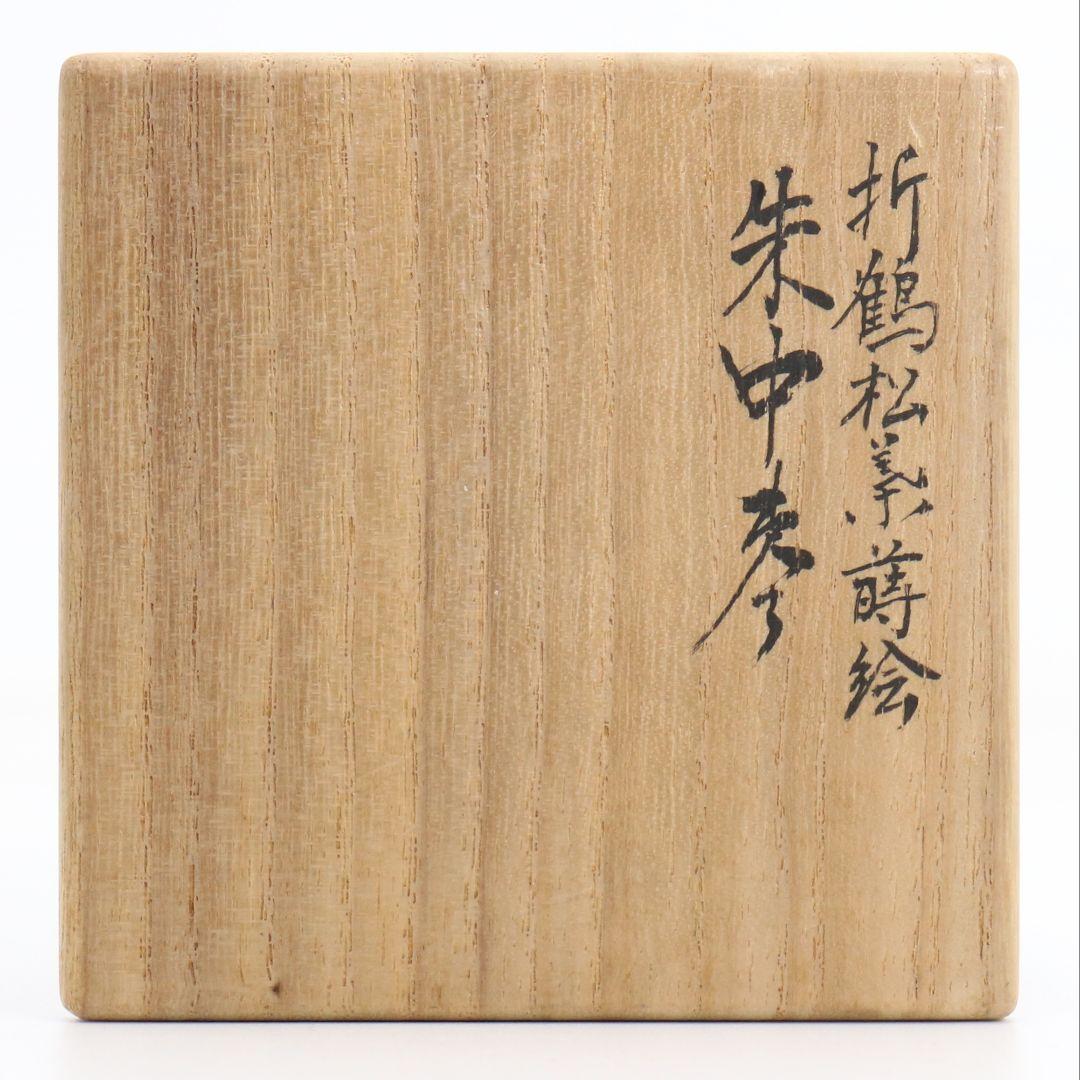 折鶴松葉蒔絵
朱中棗